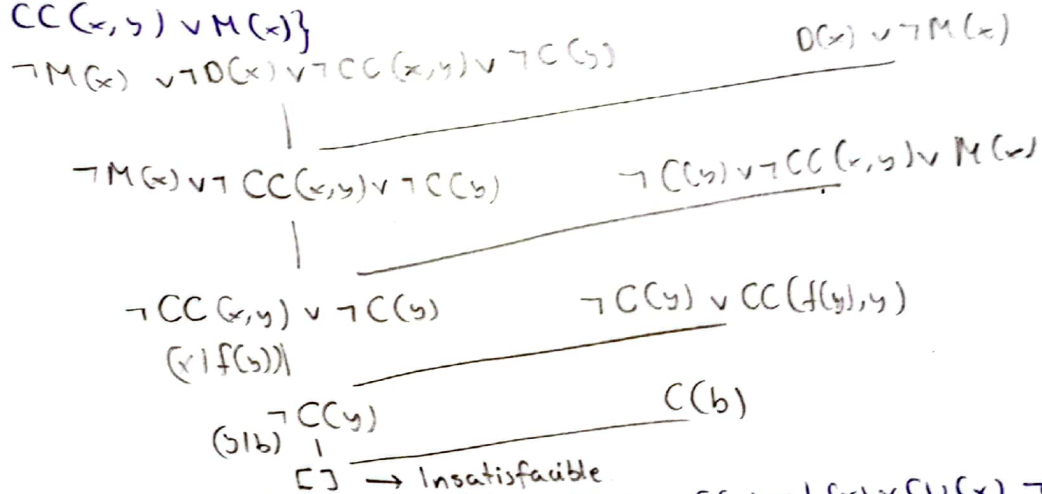 CC(x,y) ∨ M(x)}
¬M(x) ∨¬D(x) ∨¬CC(x,y) ∨ ¬C(y) D(x) ∨¬M(x)
¬M(x) ∨¬ CC(x,y) ∨ ¬C(y) ¬C(y) ∨¬CC(x,y) ∨ M(x)
¬CC(x,y) ∨ ¬C(y) ¬C(y) ∨ CC(f(y),y)
(x|f(y))
¬C(y) C(b)
(y|b)
[] → Insatisfacible